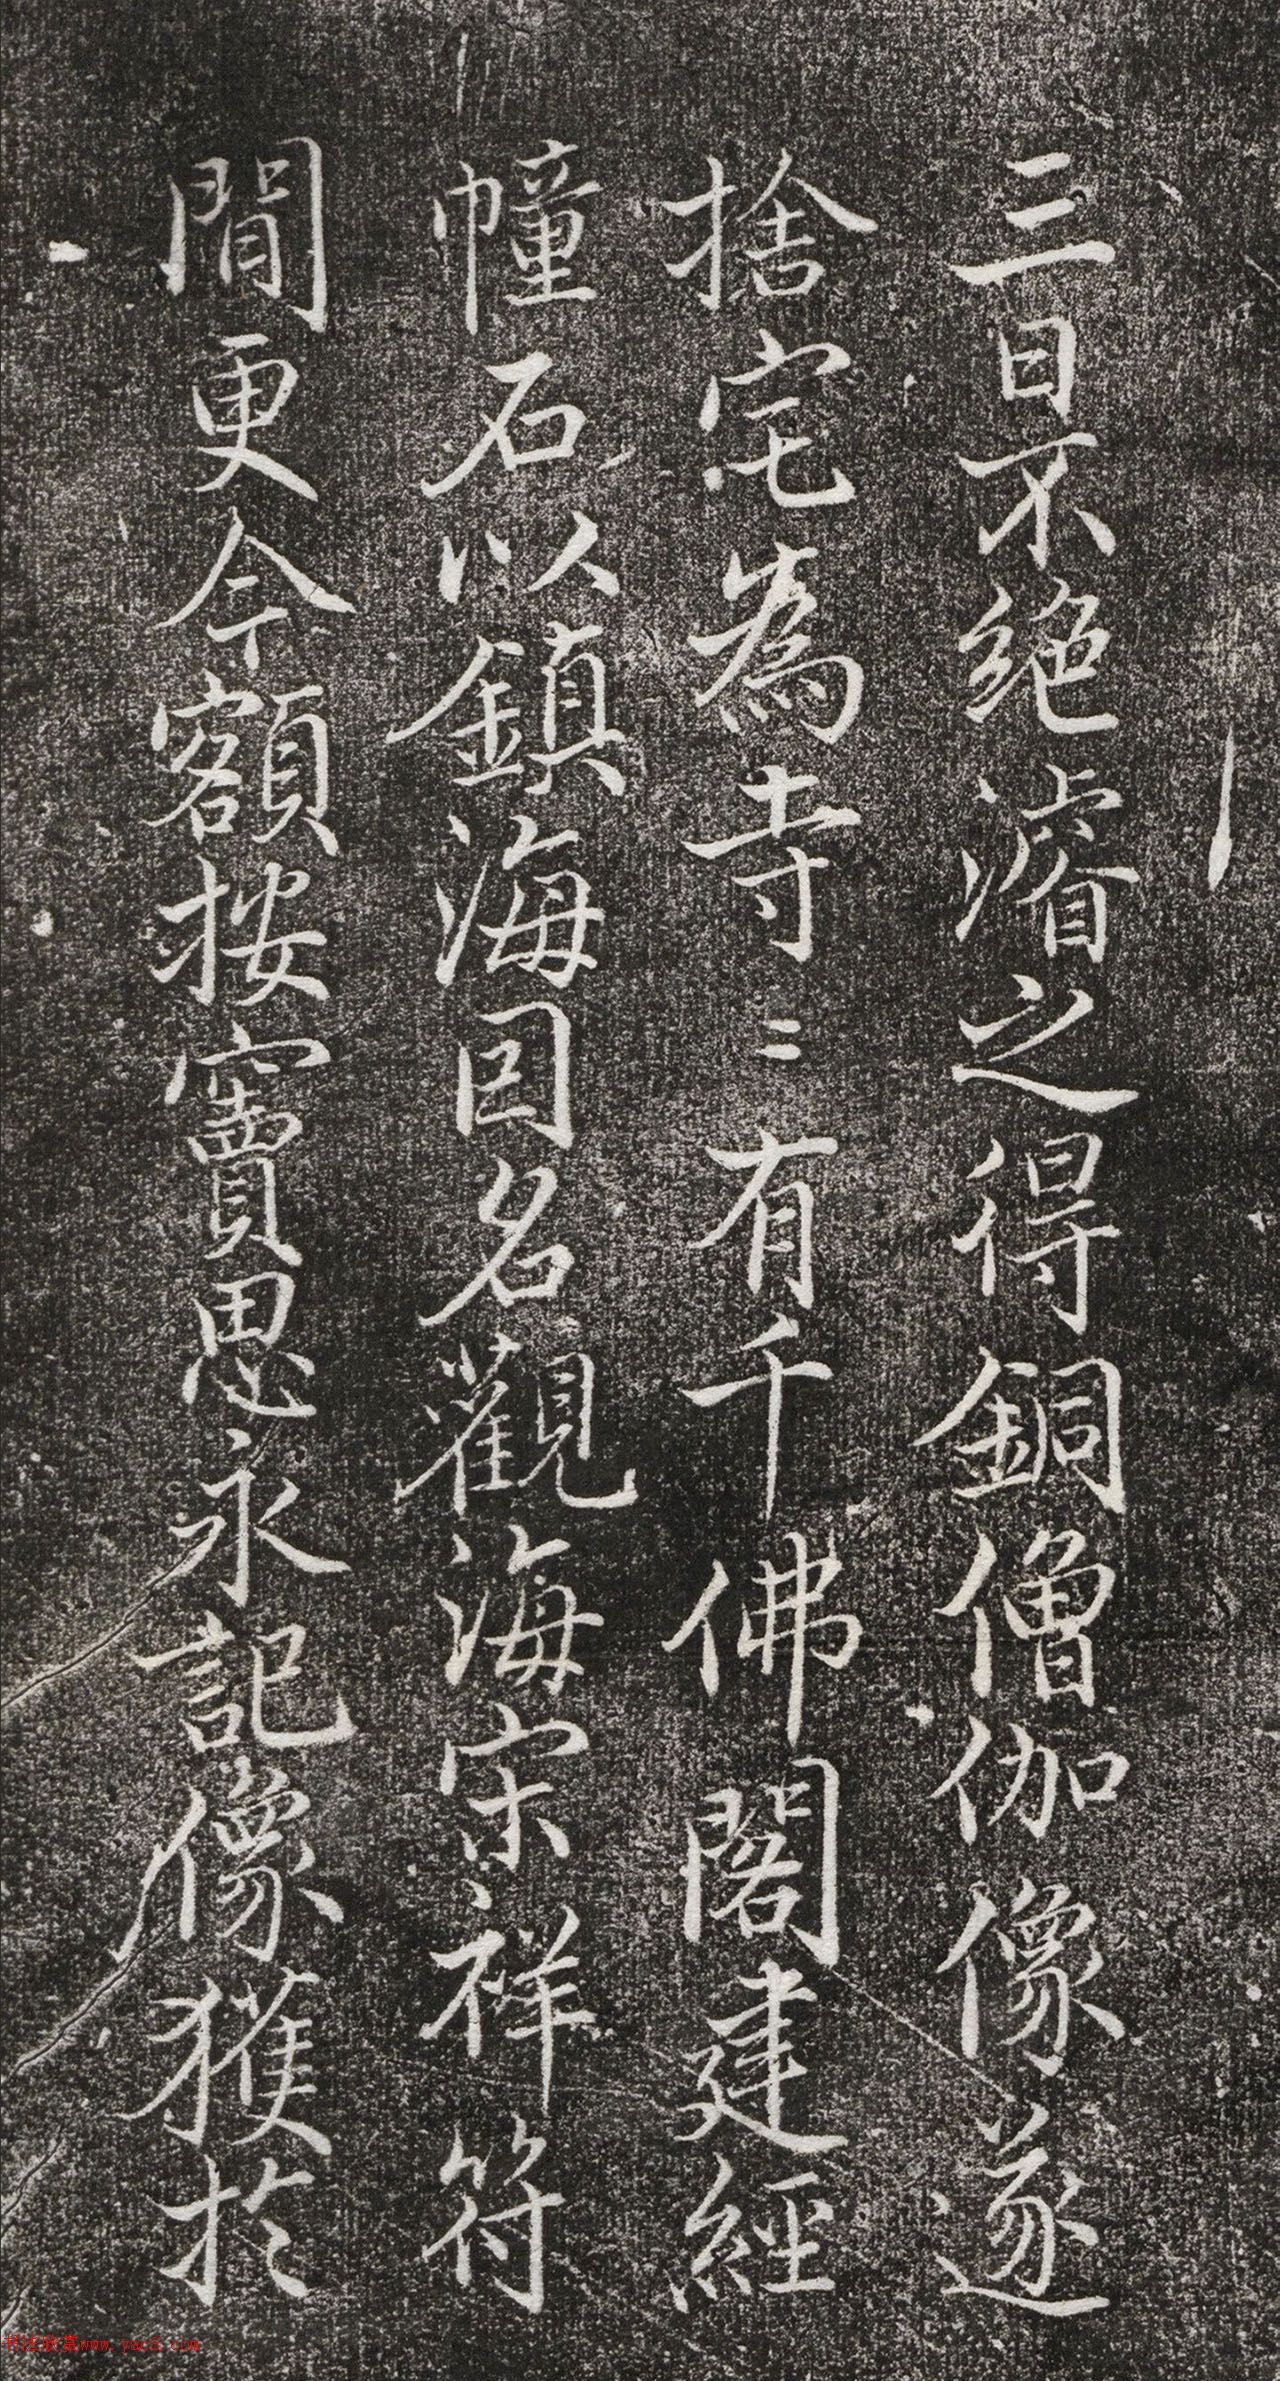 三日不絶濬之得銅僧伽像遂
捨宅為寺〻有千佛閣建經
幢石以鎮海因名觀海宋祥符
間更今額按竇思永記像獲於
书法欣赏www.yac8.com